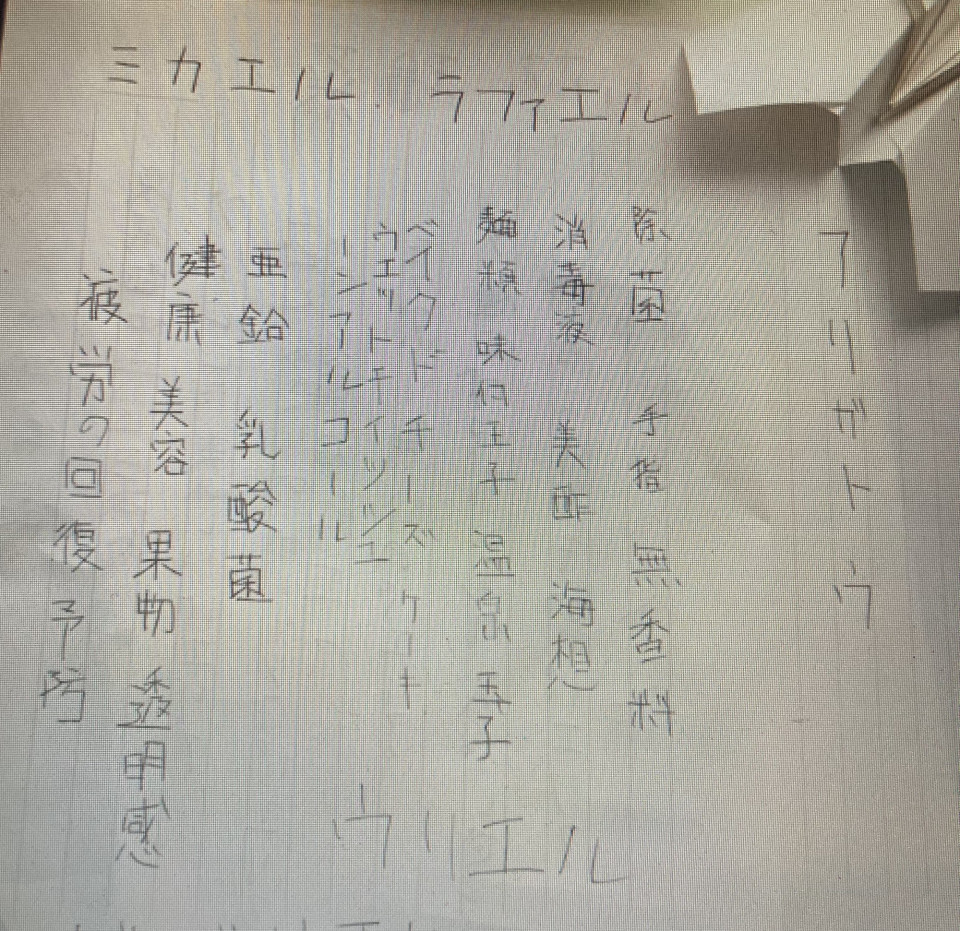 ミカエル ラファエル
アリガトウ
除菌 手指 無香料
消毒液 美酢 海想
麺類 味付玉子 温泉玉子
ベイクドチーズケーキ
ウエットティッシュ
ーンアルコール
亜鉛 乳酸菌
健康 美容 果物 透明感
疲労の回復予防
ウリエル